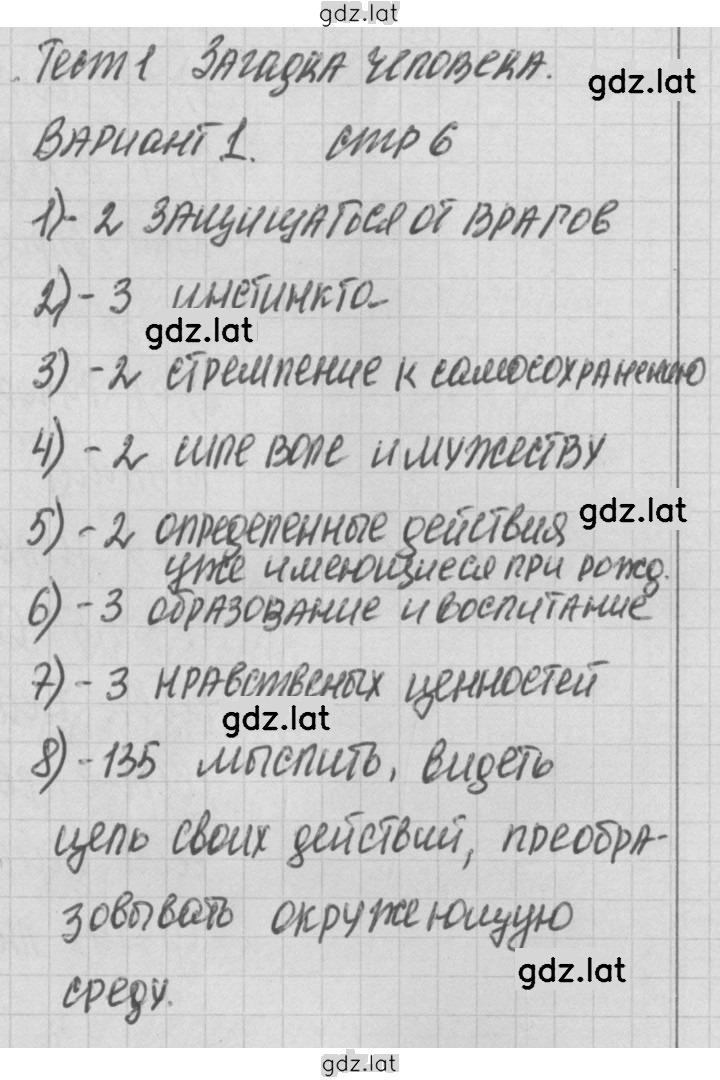 gdz.lat
Тест 1 Загадка человека.
gdz.lat
Вариант 1. стр 6
1)- 2 защищаться от врагов
2)- 3 инстинкто
gdz.lat
3) -2 стремление к самосохранению
4) -2 силе воле и мужеству
gdz.lat
5) -2 определенные действия
уже имеющиеся при рожд.
6) -3 образование и воспитание
7) -3 нравственых ценностей
gdz.lat
8) -135 мыслить, видеть
цель своих действий, преобра-
зовывать окружеющую
gdz.lat
среду.
gdz.lat